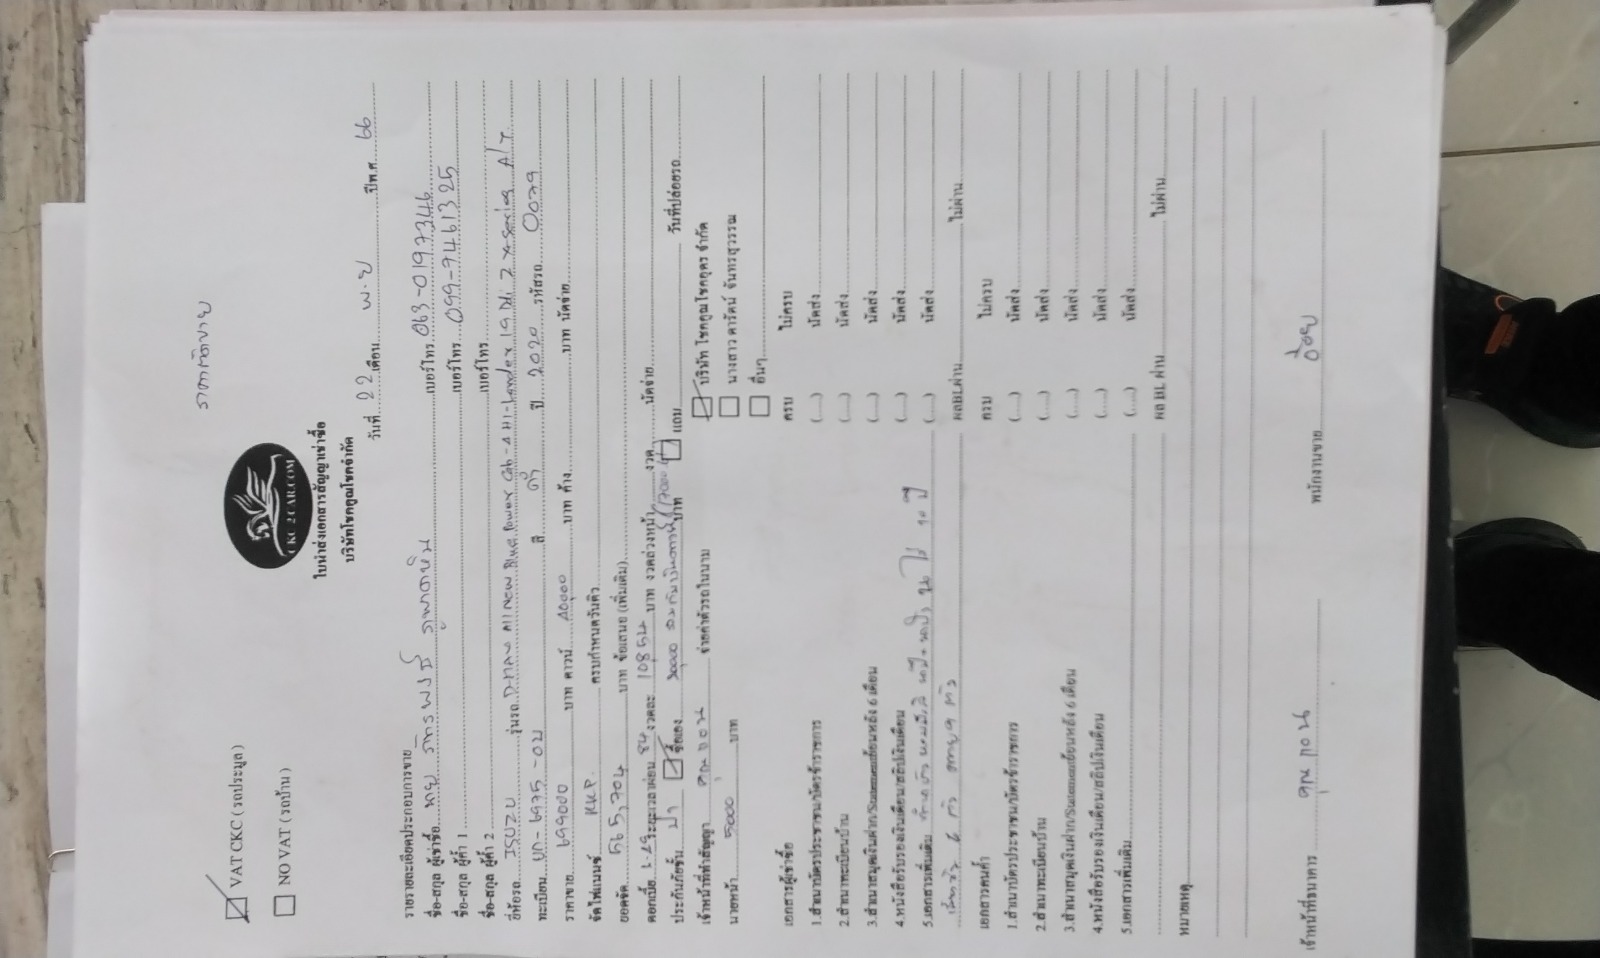 ราคาติดขาย
☑ VAT CKC ( รถประมูล )
☐ NO VAT ( รถบ้าน )
CKC 2 CAR.COM
ใบนำส่งเอกสารสัญญาเช่าซื้อ
บริษัทโชคคูณโชคจำกัด
วันที่ 22 เดือน พ.ย ปีพ.ศ 66
รายรายละเอียดประกอบการขาย
ชื่อ-สกุล ผู้เช่าซื้อ เบอร์โทร 063-0197346
ชื่อ-สกุล ผู้ค้ำ 1 เบอร์โทร 099-7461325
ชื่อ-สกุล ผู้ค้ำ 2 เบอร์โทร
ยี่ห้อรถ ISUZU รุ่นรถ D-MAX All New Blue Power Cab-4 HI-Lander 1.9 Ddi Z X-Series A/T
ทะเบียน 6975 สี ดำ ปี 2020 รหัสรถ 0079
ราคาขาย 699000 บาท ดาวน์ บาท ค้าง บาท นัดจ่าย
จัดไฟแนนซ์ KKP. ครบกำหนดวันคิว
ยอดจัด 665,704 บาท ข้อเสนอ (เพิ่มเติม)
ดอกเบี้ย ระยะเวลาผ่อน 84 งวดละ 10854 บาท งวดล่วงหน้า งวด นัดจ่าย
ประกันภัยชั้น ☑ ซื้อเอง บาท ☐ แถม วันที่ปล่อยรถ
เจ้าหน้าที่ทำสัญญา จ่ายค่าตัวรถในนาม ☑ บริษัท โชคคูณโชคคูคร จำกัด
นายหน้า 5000 บาท ☐ นางสาว ดารัตน์ จันทรสุวรรณ
☐ อื่นๆ
เอกสารผู้เช่าซื้อ ครบ ไม่ครบ
1.สำเนาบัตรประชาชน/บัตรข้าราชการ (.....) นัดส่ง
2.สำเนาทะเบียนบ้าน (.....) นัดส่ง
3.สำเนาสมุดเงินฝาก/Statementย้อนหลัง 6 เดือน (.....) นัดส่ง
4.หนังสือรับรองเงินเดือน/สลิปเงินเดือน (.....) นัดส่ง
5.เอกสารเพิ่มเติม (.....) นัดส่ง
ผลBLผ่าน ไม่ผ่าน
เอกสารคนค้ำ ครบ ไม่ครบ
1.สำเนาบัตรประชาชน/บัตรข้าราชการ (.....) นัดส่ง
2.สำเนาทะเบียนบ้าน (.....) นัดส่ง
3.สำเนาสมุดเงินฝาก/Statementย้อนหลัง 6 เดือน (.....) นัดส่ง
4.หนังสือรับรองเงินเดือน/สลิปเงินเดือน (.....) นัดส่ง
5.เอกสารเพิ่มเติม (.....) นัดส่ง
ผล BL ผ่าน ไม่ผ่าน
หมายเหตุ
เจ้าหน้าที่ธนาคาร พนักงานขาย อ้อย